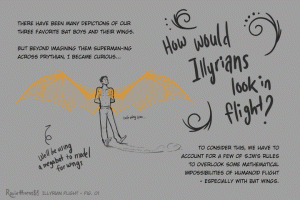 THERE HAVE BEEN MANY DEPICTIONS OF OUR
THREE FAVORITE BAT BOYS AND THEIR WINGS.
BUT BEYOND IMAGINING THEM SUPERMAN-ING
ACROSS PRYTHIAN, I BECAME CURIOUS...
How would
Illyrians
look in
flight?
we'll be using
a megabat to model
for wings
TO CONSIDER THIS, WE HAVE TO
ACCOUNT FOR A FEW OF SJM'S RULES
TO OVERLOOK SOME MATHEMATICAL
IMPOSSIBILITIES OF HUMANOID FLIGHT
- ESPECIALLY WITH BAT WINGS.
ILLYRIAN FLIGHT - PG. 01